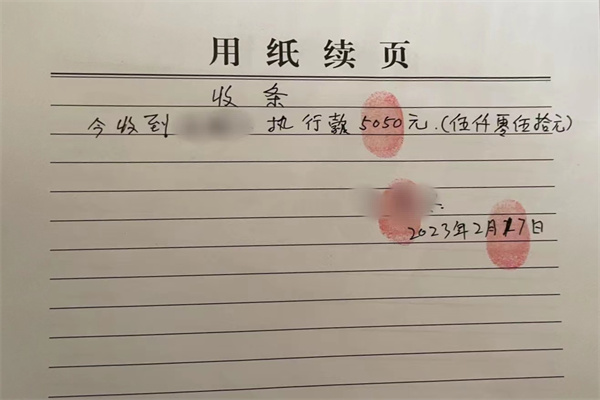 用纸续页
收条
今收到 执行款5050元.(伍仟零伍拾元)
2023年2月17日